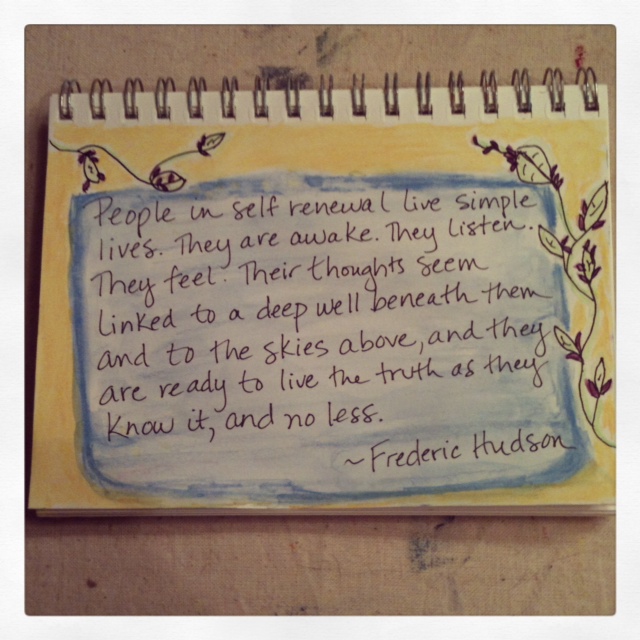 People in self renewal live simple
lives. They are awake. They listen.
They feel. Their thoughts seem
linked to a deep well beneath them
and to the skies above, and they
are ready to live the truth as they
know it, and no less.
~Frederic Hudson